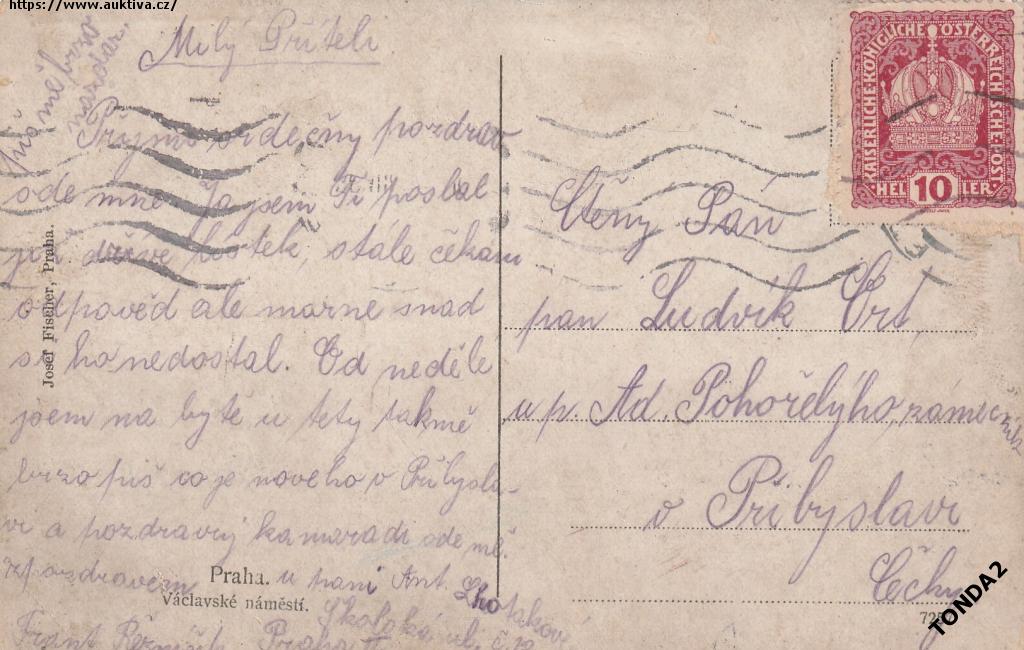 https://www.auktiva.cz/
Milý Příteli
Přijmi srdečny pozdrav
ode mne Ja jsem Ti poslal
již dříve lístek, stále čekam
odpověd ale marně snad
si ho nedostal. Od neděle
jsem na bytě u tety tak mě
brzo piš co je noveho v Přibysla-
vi a pozdravuj kamaradi ode mě.
S pozdravem
u paní Ant. Lhotakové
Školská ul. č. 12
Frant Řezníček Praha II
piš mě brzo
nazdar.
Josef Fischer, Praha.
Praha.
Václavské náměstí.
KAISERLICHE KÖNIGLICHE ÖSTERREICHISCHE POST
HEL 10 LER
Ctěny Pán
pan Ludvík Crt,
u p. Ad. Pohořelýho, zamečník
v Přibyslavi
Čechy
TONDA2